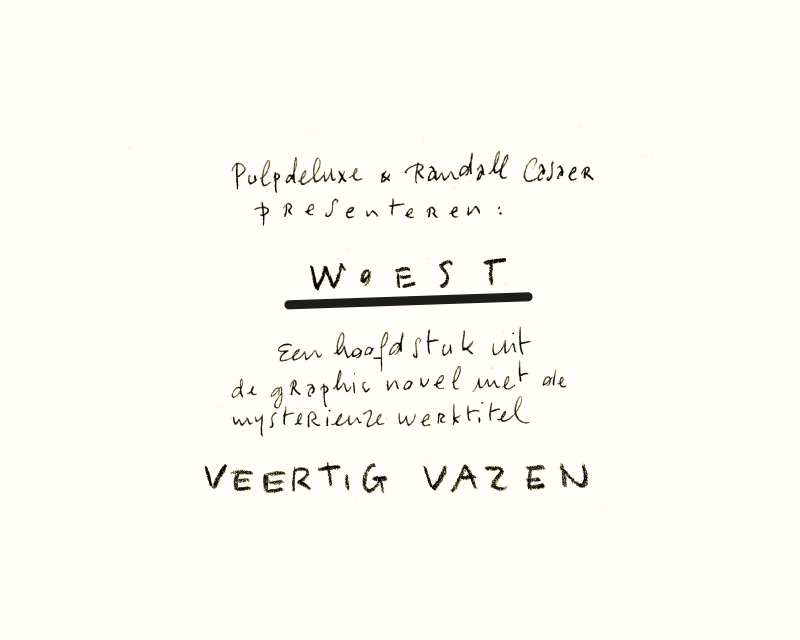 Pulpdeluxe & Randall Casaer
presenteren:
WOEST
Een hoofdstuk uit
de graphic novel met de
mysterieuze werktitel
VEERTIG VAZEN